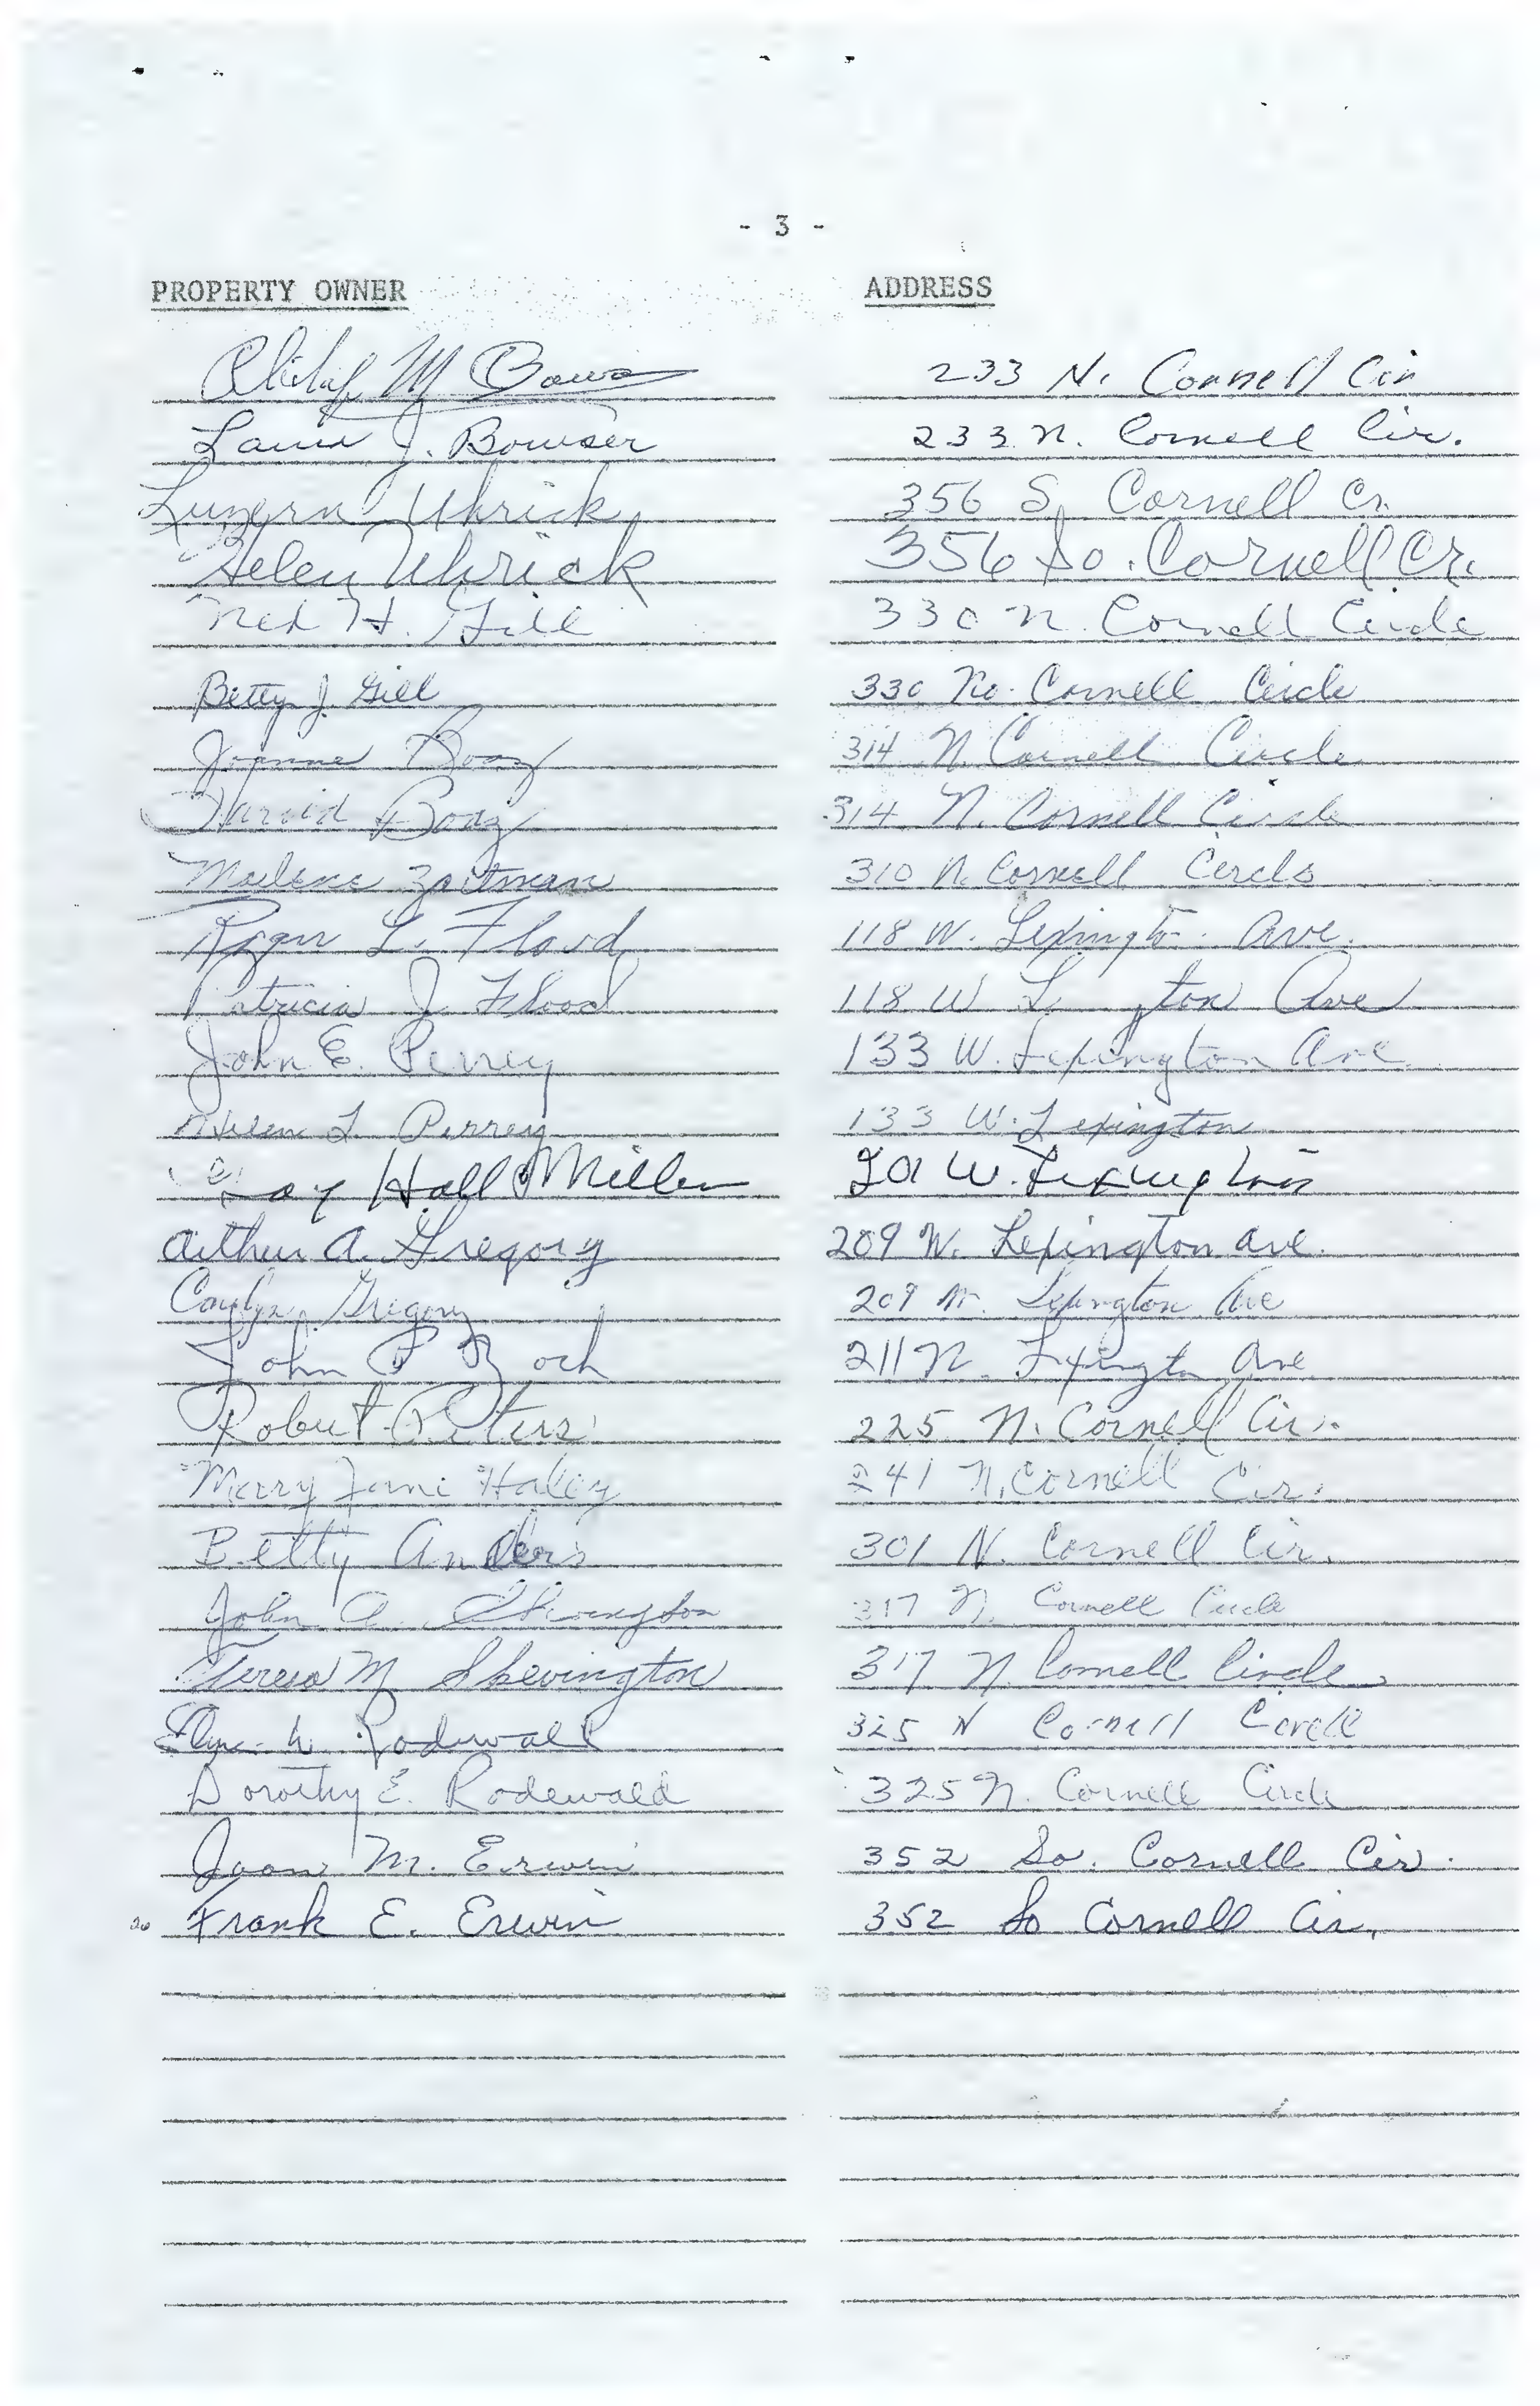 - 3 -
PROPERTY OWNER ADDRESS
Philip M 233 N. Cornell Cir
J. Bowser 233 N. Cornell Cir.
Luzern Uhrick 356 S. Cornell Cr.
Helen Uhrick 356 So. Cornell Cr.
Ned H. Gill 330 N. Cornell Circle
Betty J. Gill 330 No. Cornell Circle
Joanne Booz 314 N. Cornell Circle
Booz 314 N. Cornell Circle
310 N. Cornell Circle
Roger L. Flood 118 W. Lexington Ave.
Patricia J. Flood 118 W Ave
John E. Perrey 133 W. Lexington Ave
Helen L. Perrey 133 W. Lexington
Hall Miller 201 W. Lexington
Arthur A. Gregory 209 W. Lexington Ave.
Gregory 209 W. Lexington Ave
John P 211 Lexington Ave
Robert Peters 225 N. Cornell Cir.
Mary Jane Haley 241 N. Cornell Cir.
Betty Anders 301 N. Cornell Cir.
John A. Skevington 317 N. Cornell Circle
Teresa M. Skevington 317 N Cornell Circle
W. Rodewald 325 N Cornell
Dorothy E. Rodewald 325 N. Cornell Circle
Joan M. Erwin 352 So. Cornell Cir.
26 Frank E. Erwin 352 So Cornell Cir.